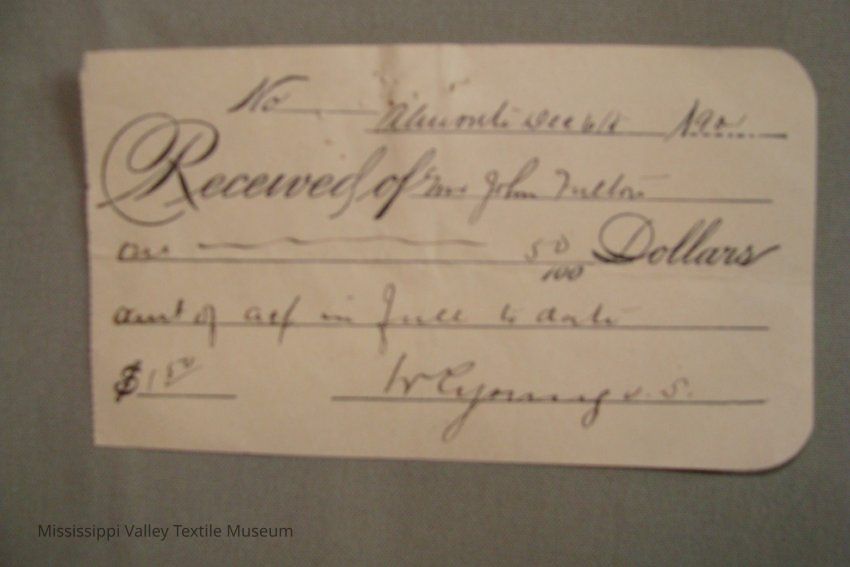 No Almonte Dec 6th 190
Received of Mr John Fulton
one 50/100 Dollars
amt of acf in full to date
$1.50 W Young
Mississippi Valley Textile Museum